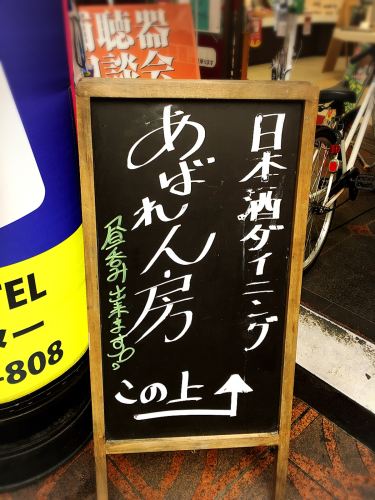 日本酒ダイニング
あばれん房
昼呑み出来ますよ。
この上
補聴器
相談会
TEL
-808